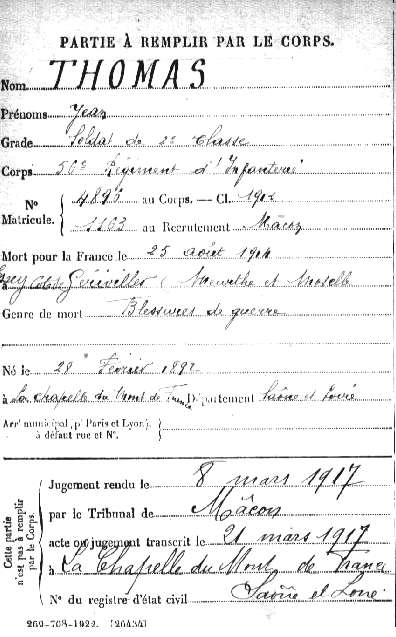 PARTIE À REMPLIR PAR LE CORPS.
Nom THOMAS
Prénoms Jean
Grade Soldat de 2e Classe
Corps 56e Régiment d'Infanterie
N° Matricule. 4895 au Corps. — Cl. 1912
1163 au Recrutement Mâcon
Mort pour la France le 25 août 1914
à Gerbéviller (Meurthe et Moselle
Genre de mort Blessures de guerre
Né le 28 Février 1892
à La Chapelle du Mont de France Département Saône et Loire
Arrt municipal (pr Paris et Lyon),
à défaut rue et N°.
Cette partie n'est pas à remplir par le Corps.
Jugement rendu le 8 mars 1917
par le Tribunal de Mâcon
acte ou jugement transcrit le 21 mars 1917
à La Chapelle du Mont de France
Saône et Loire
N° du registre d'état civil
269-708-1922. [26434]